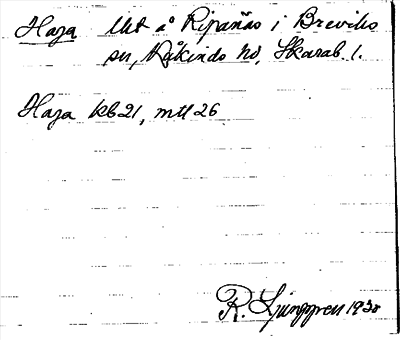 Haga Ut å Ripanäs i Breviks
sn, Kåkinds hd, Skarab l.
Haga kb 21, mtl 26
R. Ljunggren 1930